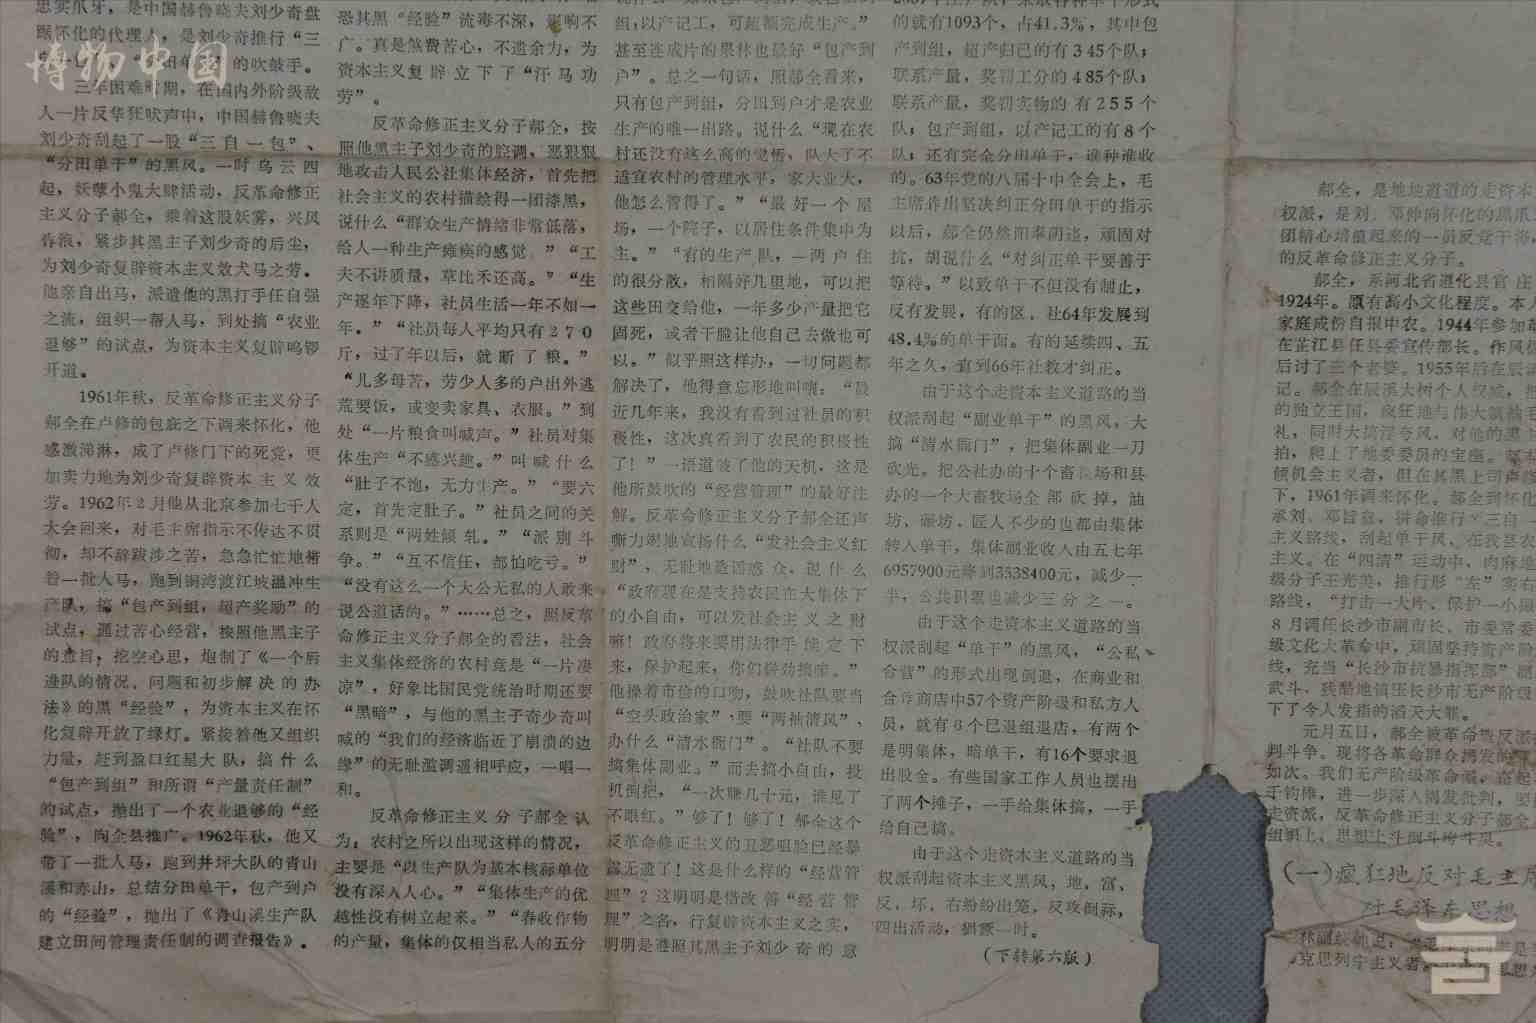 博物中国
忠实爪牙，是中国赫鲁晓夫刘少奇盘
踞怀化的代理人，是刘少奇推行“三
的吹鼓手。
三年困难时期，在国内外阶级敌
人一片反华狂吠声中，中国赫鲁晓夫
刘少奇刮起了一股“三自一包”、
“分田单干”的黑风。一时乌云四
起，妖孽小鬼大肆活动，反革命修正
主义分子郝全，乘着这股妖雾，兴风
作浪，紧步其黑主子刘少奇的后尘，
为刘少奇复辟资本主义效犬马之劳。
他亲自出马，派遣他的黑打手任自强
之流，组织一帮人马，到处搞“农业
退够”的试点，为资本主义复辟鸣锣
开道。
1961年秋，反革命修正主义分子
郝全在卢修的包庇之下调来怀化，他
感激涕淋，成了卢修门下的死党，更
加卖力地为刘少奇复辟资本主义效
劳。1962年2月他从北京参加七千人
大会回来，对毛主席指示不传达不贯
彻，却不辞跋涉之苦，急急忙忙地带
着一批人马，跑到铜湾渡江坡温冲生
产队，搞“包产到组，超产奖励”的
试点，通过苦心经营，按照他黑主子
的意旨，挖空心思，炮制了《一个后
进队的情况、问题和初步解决的办
法》的黑“经验”，为资本主义在怀
化复辟开放了绿灯。紧接着他又组织
力量，赶到盈口红星大队，搞什么
“包产到组”和所谓“产量责任制”
的试点，抛出了一个农业退够的“经
验”，向全县推广。1962年秋，他又
带了一批人马，跑到井坪大队的青山
溪和赤山，总结分田单干，包产到户
的“经验”，抛出了《青山溪生产队
建立田间管理责任制的调查报告》。
恐其黑“经验”流毒不深，影响不
广。真是煞费苦心，不遗余力，为
资本主义复辟立下了“汗马功
劳”。
反革命修正主义分子郝全，按
照他黑主子刘少奇的腔调，恶狠狠
地攻击人民公社集体经济，首先把
社会主义的农村描绘得一团漆黑，
说什么“群众生产情绪非常低落，
给人一种生产瘫痪的感觉。”“工
夫不讲质量，草比禾还高。”“生
产逐年下降，社员生活一年不如一
年。”“社员每人平均只有270
斤，过了年以后，就断了粮。”
“儿多母苦，劳少人多的户出外逃
荒要饭，或变卖家具、衣服。”到
处“一片粮食叫喊声。”社员对集
体生产“不感兴趣。”叫喊什么
“肚子不饱，无力生产。”“要六
定，首先定肚子。”社员之间的关
系则是“两姓倾轧。”“派别斗
争。”“互不信任，都怕吃亏。”
“没有这么一个大公无私的人敢来
说公道话的。”……总之，照反革
命修正主义分子郝全的看法，社会
主义集体经济的农村竟是“一片凄
凉”，好象比国民党统治时期还要
“黑暗”，与他的黑主子奇少奇叫
喊的“我们的经济临近了崩溃的边
缘”的无耻滥调遥相呼应，一唱一
和。
反革命修正主义分子郝全认
为：农村之所以出现这样的情况，
主要是“以生产队为基本核算单位
没有深入人心。”“集体生产的优
越性没有树立起来。”“春收作物
的产量，集体的仅相当私人的五分
组，以产记工，可超额完成生产。”
甚至连成片的果林也最好“包产到
户”。总之一句话，照郝全看来，
只有包产到组，分田到户才是农业
生产的唯一出路。说什么“现在农
村还没有这么高的觉悟，队大了不
适宜农村的管理水平，家大业大，
他怎么管得了。”“最好一个屋
场，一个院子，以居住条件集中为
主。”“有的生产队，一两户住
的很分散，相隔好几里地，可以把
这些田交给他，一年多少产量把它
固死，或者干脆让他自己去做也可
以。”似乎照这样办，一切问题都
解决了，他得意忘形地叫嚷：“最
近几年来，我没有看到过社员的积
极性，这次真看到了农民的积极性
了！”一语道破了他的天机，这是
他所鼓吹的“经营管理”的最好注
解。反革命修正主义分子郝全还声
嘶力竭地宣扬什么“发社会主义红
财”，无耻地造谣惑众，说什么
“政府现在是支持农民在大集体下
的小自由，可以发社会主义之财
嘛！政府将来要用法律手续定下
来，保护起来，你们鼓劲搞嘛。”
他操着市侩的口吻，鼓吹社队要当
“空头政治家”、要“两袖清风”、
办什么“清水衙门”。“社队不要
搞集体副业。”而去搞小自由，投
机倒把，“一次赚几十元，谁见了
不眼红。”够了！够了！郝全这个
反革命修正主义的丑恶咀脸已经暴
露无遗了！这是什么样的“经营管
理”？这明明是借改善“经营管
理”之名，行复辟资本主义之实，
明明是遵照其黑主子刘少奇的意
的就有1093个，占41.3%，其中包
产到组，超产归己的有345个队；
联系产量，奖罚工分的485个队；
联系产量，奖罚实物的有255个
队；包产到组，以产记工的有8个
队；还有完全分田单干，谁种谁收
的。63年党的八届十中全会上，毛
主席作出坚决纠正分田单干的指示
以后，郝全仍然阳奉阴违，顽固对
抗，胡说什么“对纠正单干要善于
等待。”以致单干不但没有制止，
反有发展，有的区、社64年发展到
48.4%的单干面。有的延续四、五
年之久，直到66年社教才纠正。
由于这个走资本主义道路的当
权派刮起“副业单干”的黑风，大
搞“清水衙门”，把集体副业一刀
砍光。把公社办的十个畜牧场和县
办的一个大畜牧场全部砍掉，油
坊、碾坊、匠人不少的也都由集体
转入单干，集体副业收入由五七年
6957900元降到3338400元，减少一
半，公共积累也减少三分之一。
由于这个走资本主义道路的当
权派刮起“单干”的黑风，“公私
合营”的形式出现倒退，在商业和
合作商店中57个资产阶级和私方人
员，就有8个已退组退店，有两个
是明集体，暗单干，有16个要求退
出股金。有些国家工作人员也摆出
了两个摊子，一手给集体搞，一手
给自己搞。
由于这个走资本主义道路的当
权派刮起资本主义黑风，地、富、
反、坏、右纷纷出笼，反攻倒算，
四出活动，猖獗一时。
（下转第六版）
郝全，是地地道道的走资本
权派，是刘、邓伸向怀化的黑爪
团精心培植起来的一员反党干将，
的反革命修正主义分子。
郝全，系河北省遵化县官庄
1924年。原有高小文化程度。本人
家庭成份自报中农。1944年参加
在芷江县任县委宣传部长。作风
后讨了三个老婆。1955年后在辰溪
记。郝全在辰溪大树个人权威，
的独立王国，疯狂地与伟大领袖
礼，同时大搞浮夸风，对他的黑主
拍，爬上了地委委员的宝座。
倾机会主义者，但在其黑上司卢修
下，1961年调来怀化。郝全到怀化
承刘、邓旨意，拼命推行“三自
主义路线，刮起单干风。在我县农
主义。在“四清”运动中，肉麻地
级分子王光美，推行形“左”实右
路线，“打击一大片，保护一小
8月调任长沙市副市长、市委常委
级文化大革命中，顽固坚持资产阶
线，充当“长沙市抗暴指挥部”
武斗，残酷地镇压长沙市无产阶级
下了令人发指的滔天大罪。
元月五日，郝全被革命造反派
判斗争。现将各革命群众揭发的
如次。我们无产阶级革命派，奋起
千钧棒，进一步深入揭发批判，
走资派，反革命修正主义分子郝全
组织上、思想上斗倒斗垮斗臭。
（一）疯狂地反对毛主席
对毛泽东思想